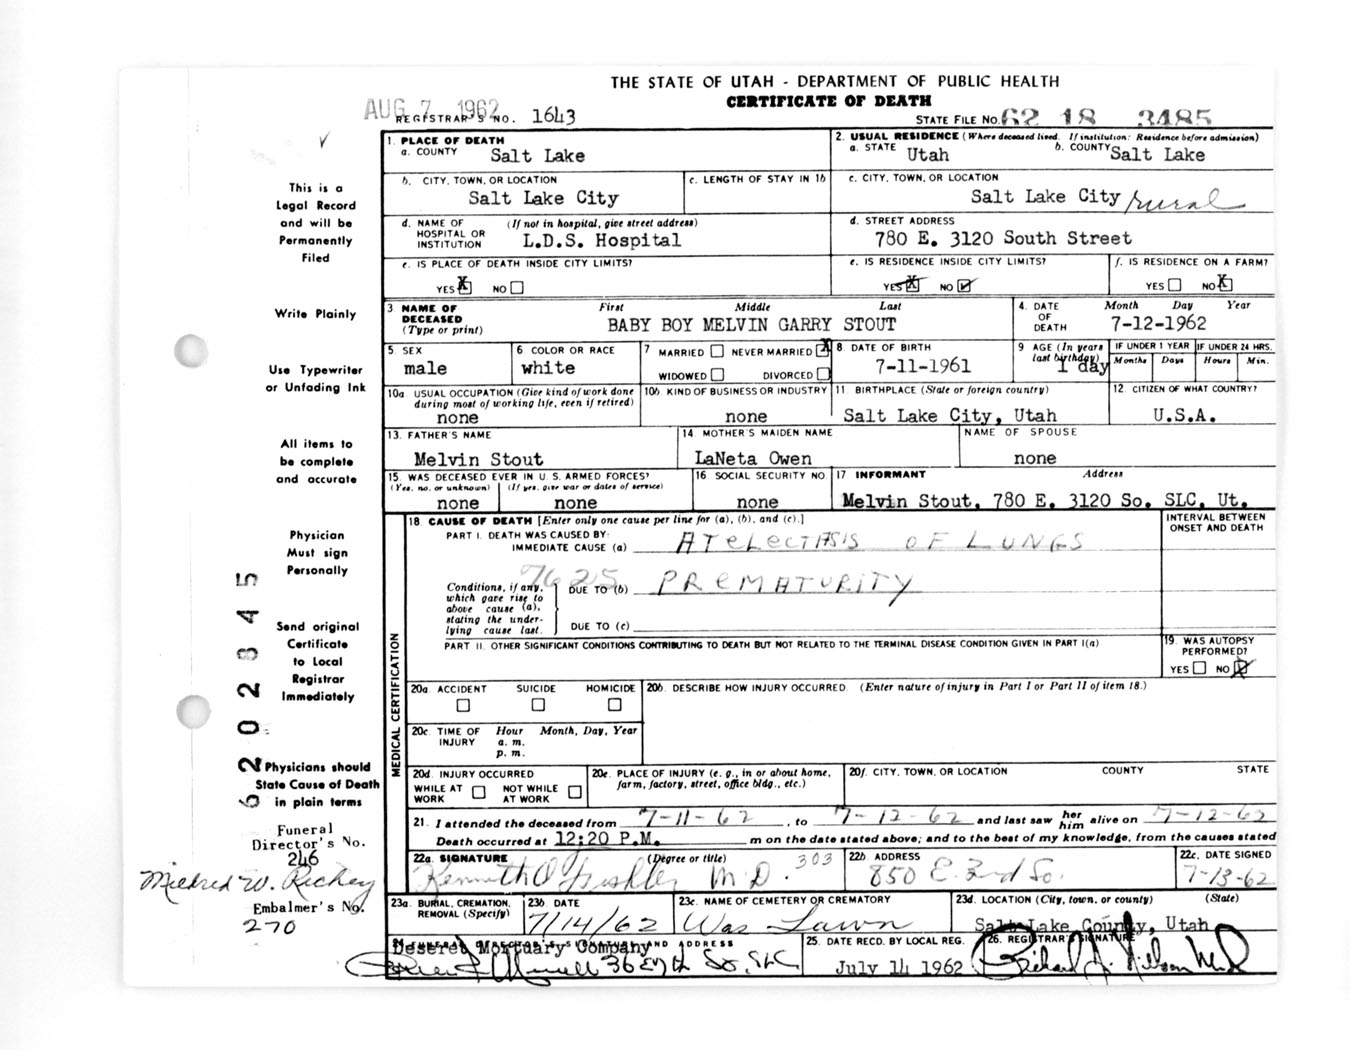 THE STATE OF UTAH - DEPARTMENT OF PUBLIC HEALTH
CERTIFICATE OF DEATH
AUG 7 1962
REGISTRAR'S NO. 1643
STATE FILE NO. 62 18 3485
This is a
Legal Record
and will be
Permanently
Filed
Write Plainly
Use Typewriter
or Unfading Ink
All items to
be complete
and accurate
Physician
Must sign
Personally
Send original
Certificate
to Local
Registrar
Immediately
Physicians should
State Cause of Death
in plain terms
Funeral
Director's No.
246
Mildred W. Richey
Embalmer's No.
270
1. PLACE OF DEATH
a. COUNTY Salt Lake
2. USUAL RESIDENCE (Where deceased lived. If institution: Residence before admission)
a. STATE Utah b. COUNTY Salt Lake
b. CITY, TOWN, OR LOCATION
Salt Lake City
c. LENGTH OF STAY IN 1b
c. CITY, TOWN, OR LOCATION
Salt Lake City rural
d. NAME OF HOSPITAL OR INSTITUTION (If not in hospital, give street address)
L.D.S. Hospital
d. STREET ADDRESS
780 E. 3120 South Street
e. IS PLACE OF DEATH INSIDE CITY LIMITS?
YES X NO
e. IS RESIDENCE INSIDE CITY LIMITS?
YES X NO
f. IS RESIDENCE ON A FARM?
YES NO X
3 NAME OF DECEASED (Type or print) First Middle Last
BABY BOY MELVIN GARRY STOUT
4. DATE OF DEATH Month Day Year
7-12-1962
5. SEX
male
6. COLOR OR RACE
white
7 MARRIED NEVER MARRIED X
WIDOWED DIVORCED
8 DATE OF BIRTH
7-11-1961
9 AGE (In years last birthday)
1 day
IF UNDER 1 YEAR
Months Days
IF UNDER 24 HRS.
Hours Min.
10a. USUAL OCCUPATION (Give kind of work done during most of working life, even if retired)
none
10b. KIND OF BUSINESS OR INDUSTRY
none
11. BIRTHPLACE (State or foreign country)
Salt Lake City, Utah
12. CITIZEN OF WHAT COUNTRY?
U.S.A.
13. FATHER'S NAME
Melvin Stout
14. MOTHER'S MAIDEN NAME
LaNeta Owen
NAME OF SPOUSE
none
15. WAS DECEASED EVER IN U. S. ARMED FORCES?
(Yes, no, or unknown) (If yes, give war or dates of service)
none none
16. SOCIAL SECURITY NO.
none
17 INFORMANT Address
Melvin Stout, 780 E. 3120 So. SLC, Ut.
18. CAUSE OF DEATH [Enter only one cause per line for (a), (b), and (c).]
INTERVAL BETWEEN ONSET AND DEATH
PART I. DEATH WAS CAUSED BY:
IMMEDIATE CAUSE (a) ATELECTASIS OF LUNGS
7625
Conditions, if any, which gave rise to above cause (a), stating the underlying cause last.
DUE TO (b) PREMATURITY
DUE TO (c)
PART II. OTHER SIGNIFICANT CONDITIONS CONTRIBUTING TO DEATH BUT NOT RELATED TO THE TERMINAL DISEASE CONDITION GIVEN IN PART I(a)
19. WAS AUTOPSY PERFORMED?
YES NO X
MEDICAL CERTIFICATION
20a. ACCIDENT SUICIDE HOMICIDE
20b. DESCRIBE HOW INJURY OCCURRED. (Enter nature of injury in Part I or Part II of item 18.)
20c. TIME OF INJURY Hour Month, Day, Year
a. m.
p. m.
20d. INJURY OCCURRED
WHILE AT WORK NOT WHILE AT WORK
20e. PLACE OF INJURY (e. g., in or about home, farm, factory, street, office bldg., etc.)
20f. CITY, TOWN, OR LOCATION COUNTY STATE
21. I attended the deceased from 7-11-62, to 7-12-62 and last saw her him alive on 7-12-62
Death occurred at 12:20 P.M. m on the date stated above; and to the best of my knowledge, from the causes stated
22a. SIGNATURE (Degree or title)
Kenneth O M.D. 303
22b. ADDRESS
850 E. 2nd So.
22c. DATE SIGNED
7-13-62
23a. BURIAL, CREMATION, REMOVAL (Specify)
23b. DATE
7/14/62
23c. NAME OF CEMETERY OR CREMATORY
Was Lawn
23d. LOCATION (City, town, or county) (State)
Salt Lake County, Utah
24. FUNERAL DIRECTOR'S SIGNATURE AND ADDRESS
Deseret Mortuary Company
36 E 7th So. SLC
25. DATE RECD. BY LOCAL REG.
July 14 1962
26. REGISTRAR'S SIGNATURE
Richard J. Nelson MD
62023 45